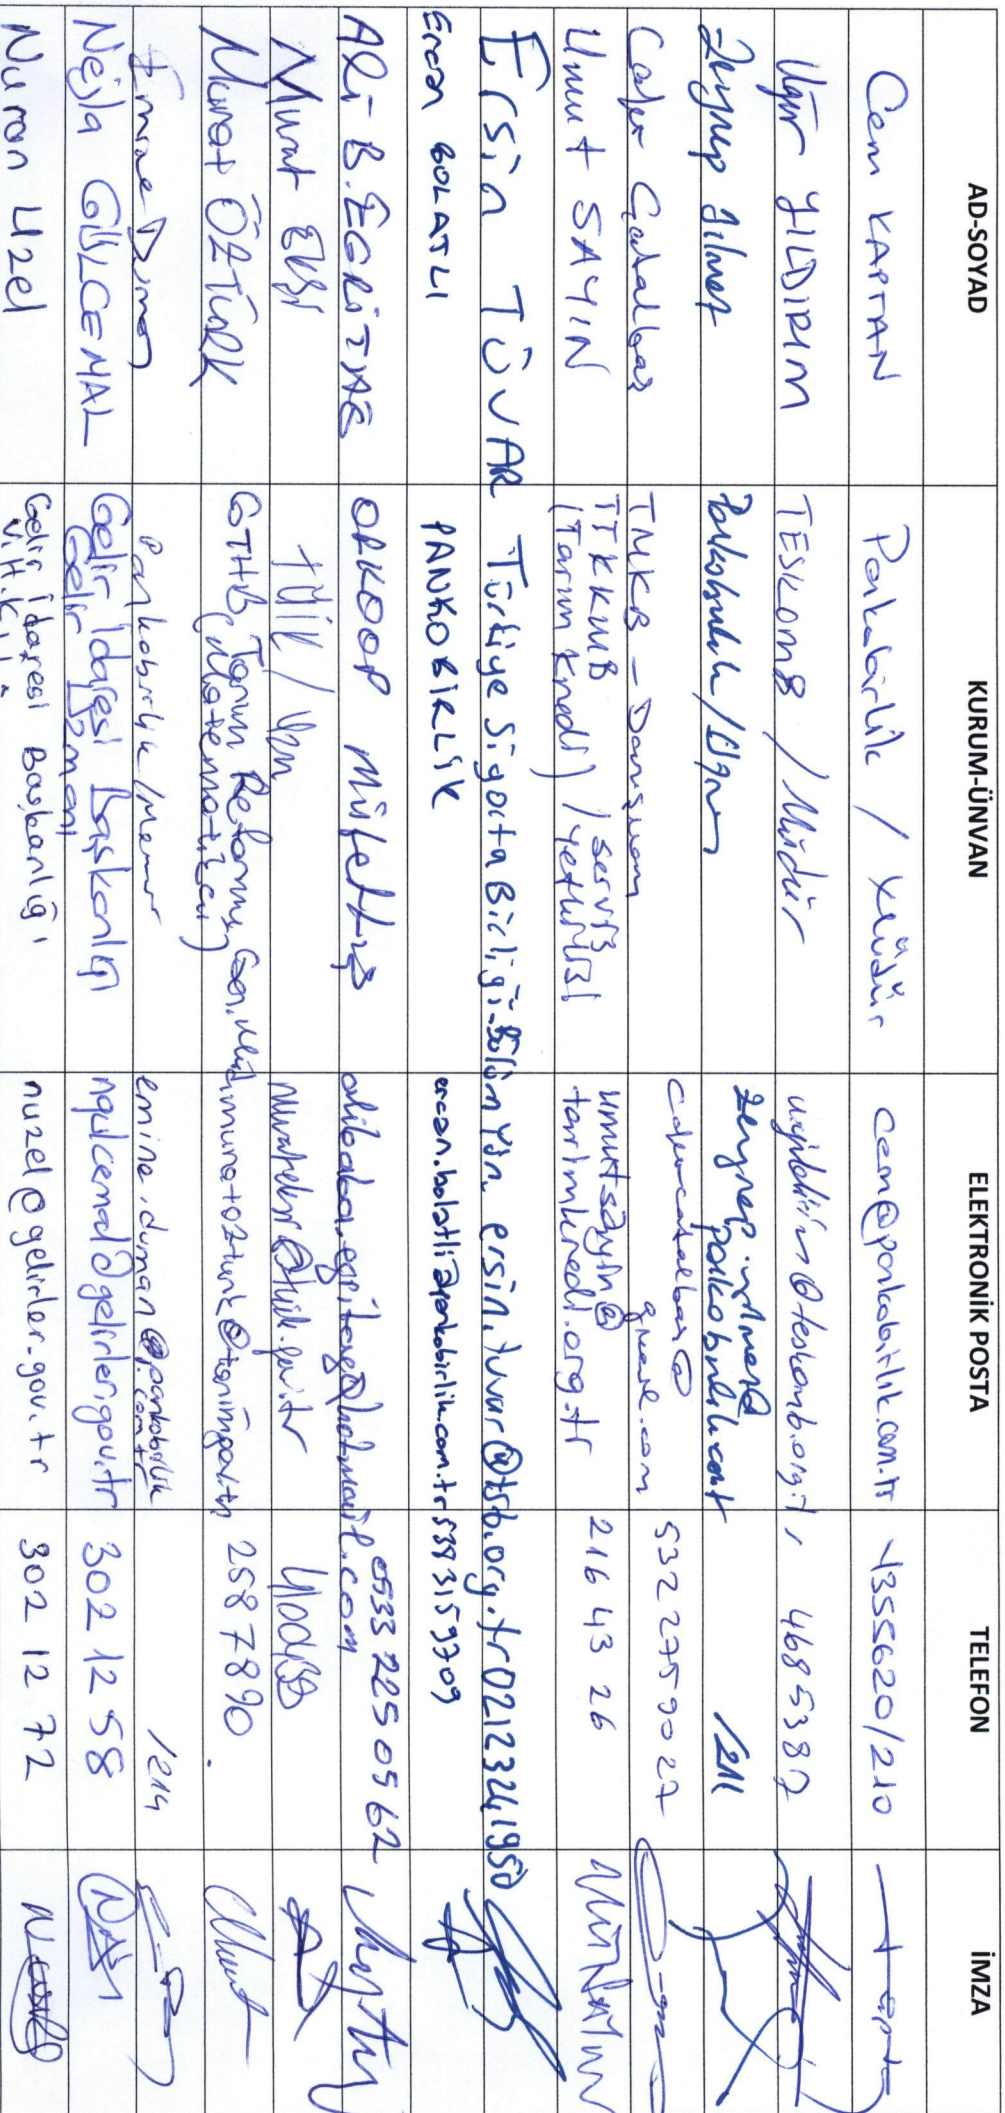 AD-SOYAD KURUM-ÜNVAN ELEKTRONİK POSTA TELEFON İMZA
Cem KAPTAN Pankobirlik / Müdür cem@pankobirlik.com.tr 4355620/210
Uğur YILDIRIM TESKOMB / Müdür 4685387
Zeynep Pankobirlik / /211
Cafer Çatalbaş TMKB - Danışman cafercatalbas@ gmail.com 532 2759027
Umut SAYIN TTKKMB / servis (Tarım Kredi) / yetkilisi umutsayin@ tarimkredi.org.tr 216 43 26
Ersin TÜVAR Türkiye Sigorta Birliği-Bölüm Yön. ersin.tuvar@tsb.org.tr 02123241950
Ercan BOLATLI PANKOBİRLİK ercan.bolatli@pankobirlik.com.tr 5383159709
Ali B. EĞRİTAĞ ORKOOP Müfettiş alibaba.egritag@hotmail.com 0533 225 05 62
Murat TÜİK /
Murat ÖZTÜRK GTHB, Tarım Reformu Gen. Müd. (Matematikçi) muratozturk@tarim.gov.tr 258 7890
Emine Duman Pankobirlik/Memur emine.duman@pankobirlik .com.tr /214
Nejla GÜLCEMAL Gelir İdaresi Başkanlığı Gelir Uzmanı ngulcemal@gelirler.gov.tr 302 12 58
Nuran Uzel Gelir İdaresi Başkanlığı V.H.K.İ. nuzel@gelirler.gov.tr 302 12 72